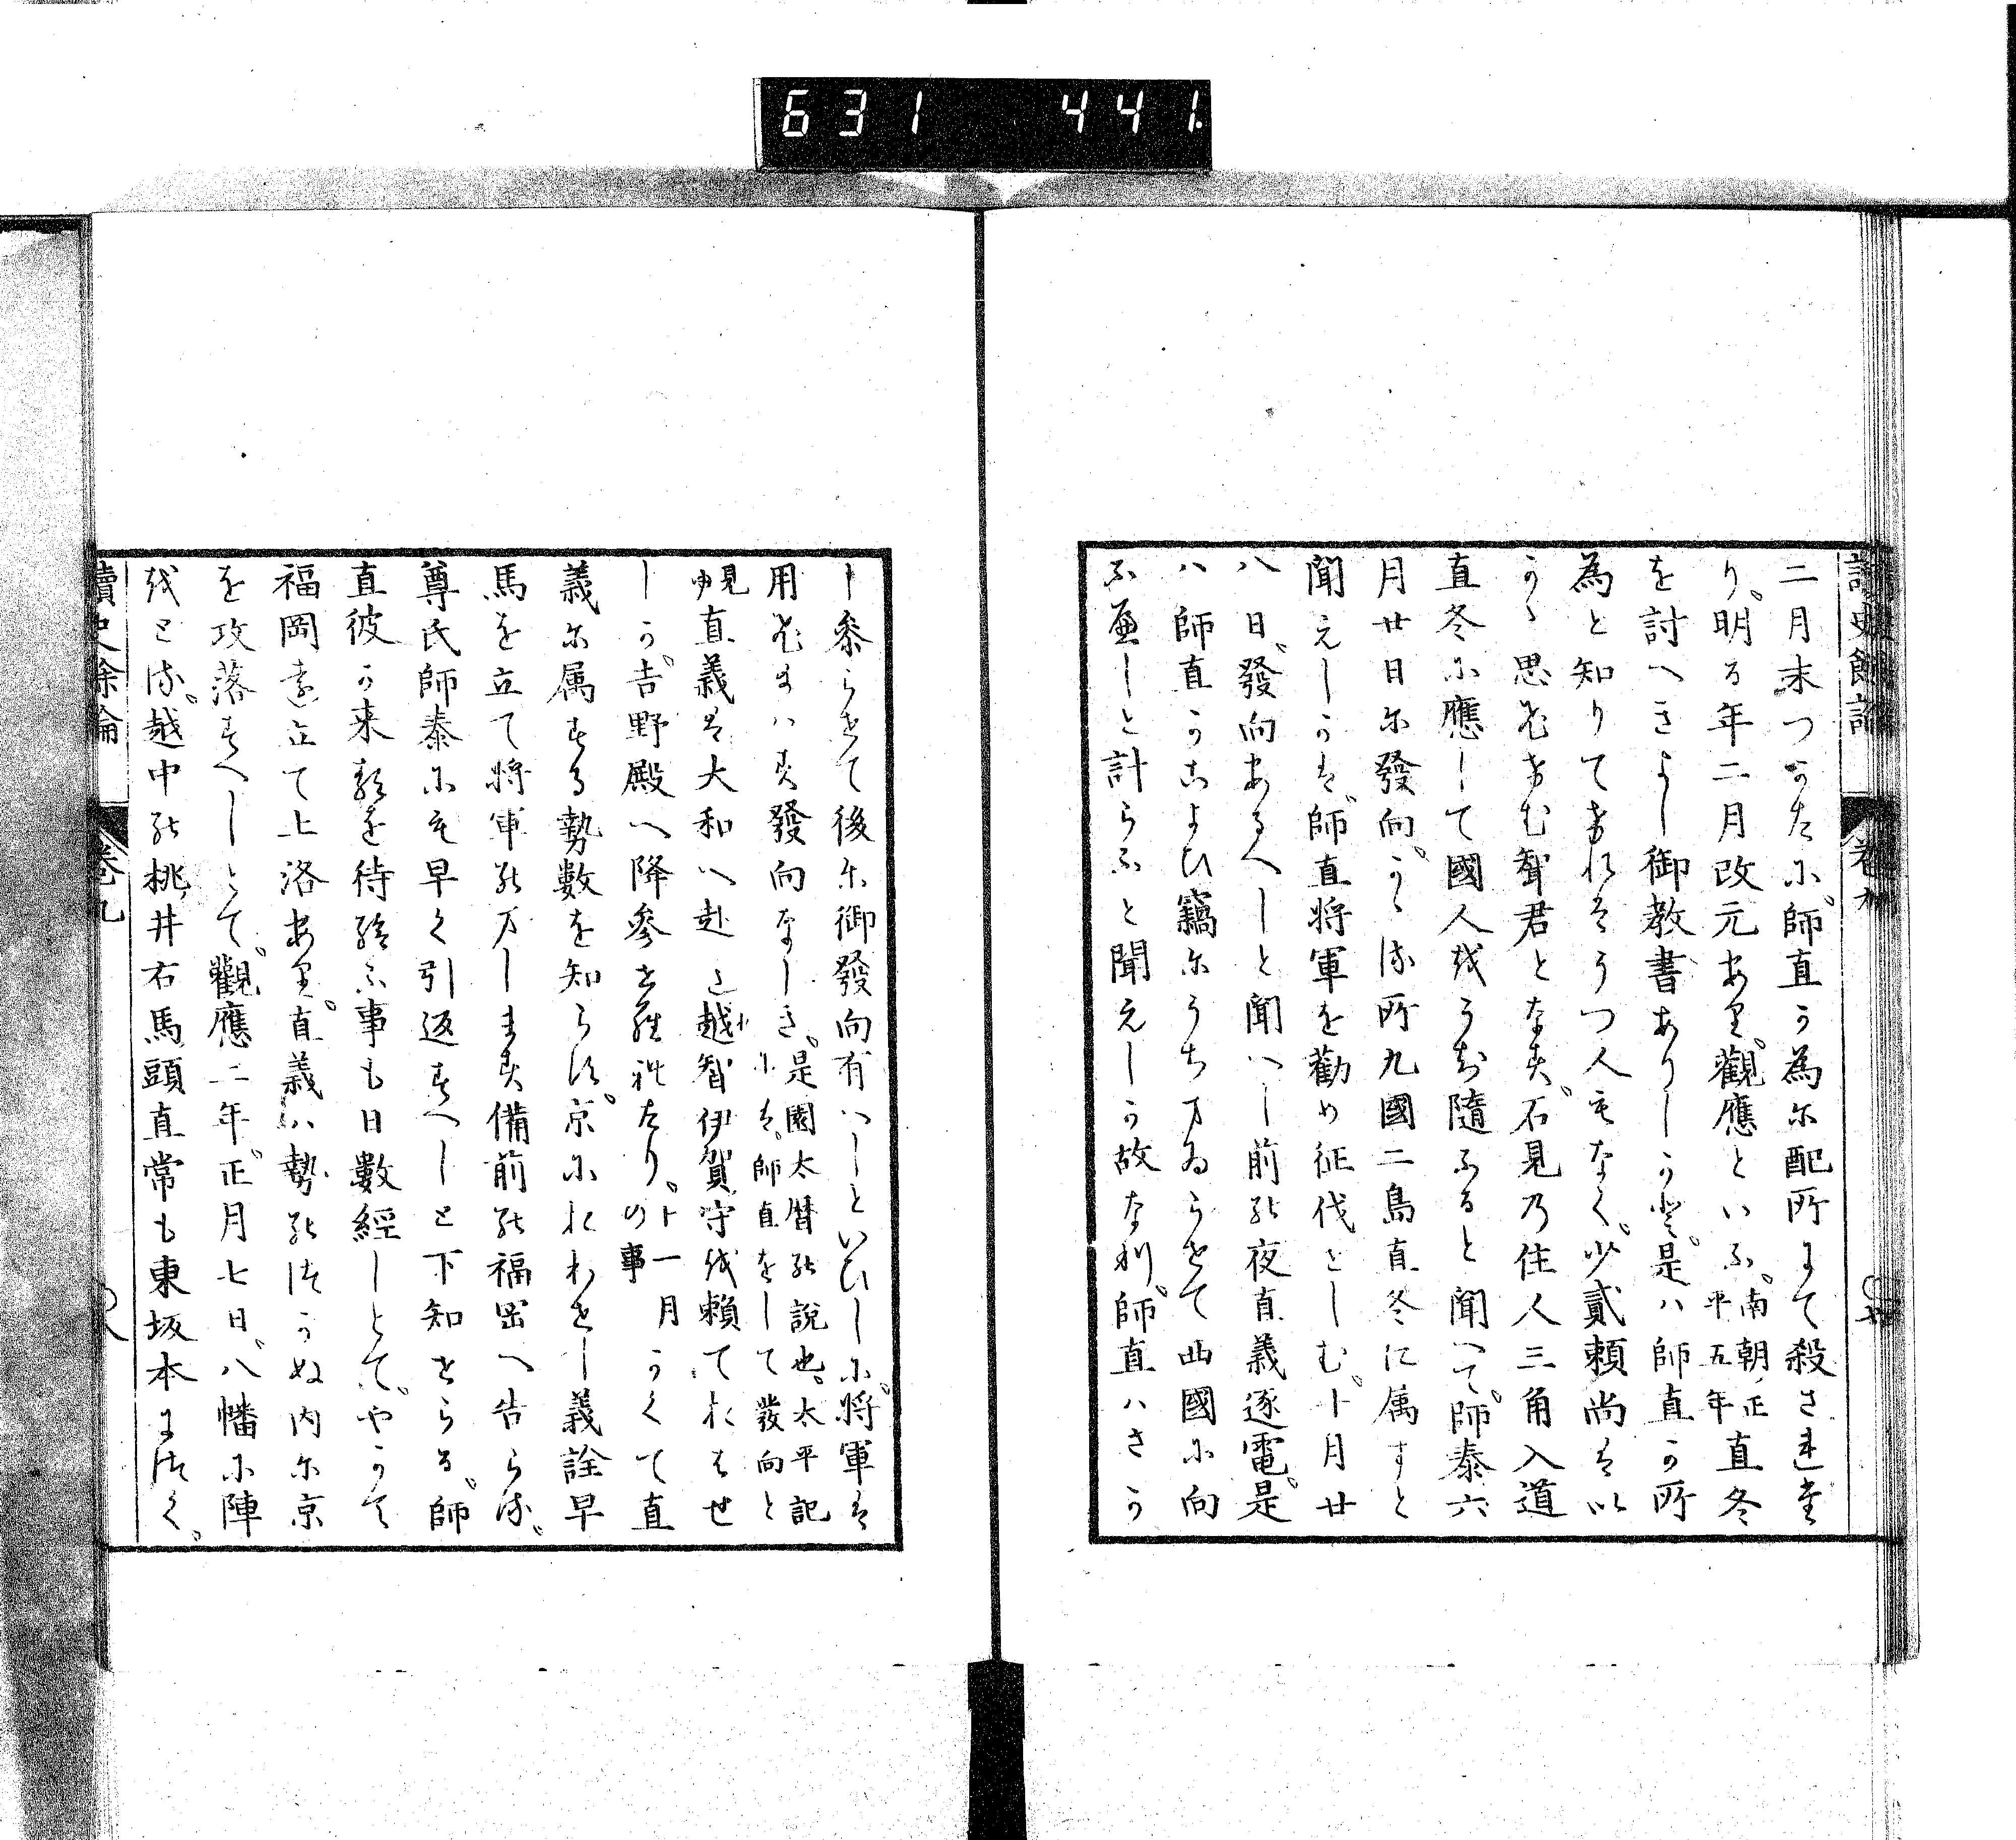 631 441
讀史餘論 卷九
二月末つかたに師直か為に配所にて殺され
り明る年二月改元あり觀應といふ南朝正平五年直冬
を討へきよし御教書ありしかと是ハ師直か所
為と知りてけれはうつ人もなく少貳頼尚は
かゝ思ひけむ聟君となす石見乃住人三角入道
直冬に應して國人をうち隨ふると聞へて師泰六
月廿日に發向かゝる所九國二島直冬に属すと
聞えしかは師直将軍を勸め征伐をしむ十月廿
八日發向あるへしと聞へし前の夜直義逐電是
ハ師直かこよひ竊にうちまゐらせて西國に向
ふへしと計らふと聞えしか故なり師直ハさか
し参らせて後に御發向有へしといひしに将軍は
用ひ給ハす發向なしき是園太暦の說也太平記には師直をして發向と見ゆ
直義は大和へ赴き越智伊賀守を頼ておはせ
しか吉野殿へ降參せられたり十一月の事かくて直
義に属する勢數を知らす京におわせし義詮早
馬を立て将軍のましますす備前の福岡へ告らる
尊氏師泰にも早く引返すへしと下知せらる師
直彼か来るを待給ふ事も日數經しとてやかて
福岡を立て上洛あり直義ハ勢のつかぬ内に京
を攻落すへしとて觀應二年正月七日八幡に陣
をとる越中の桃井右馬頭直常も東坂本につく
讀史餘論 卷九 八